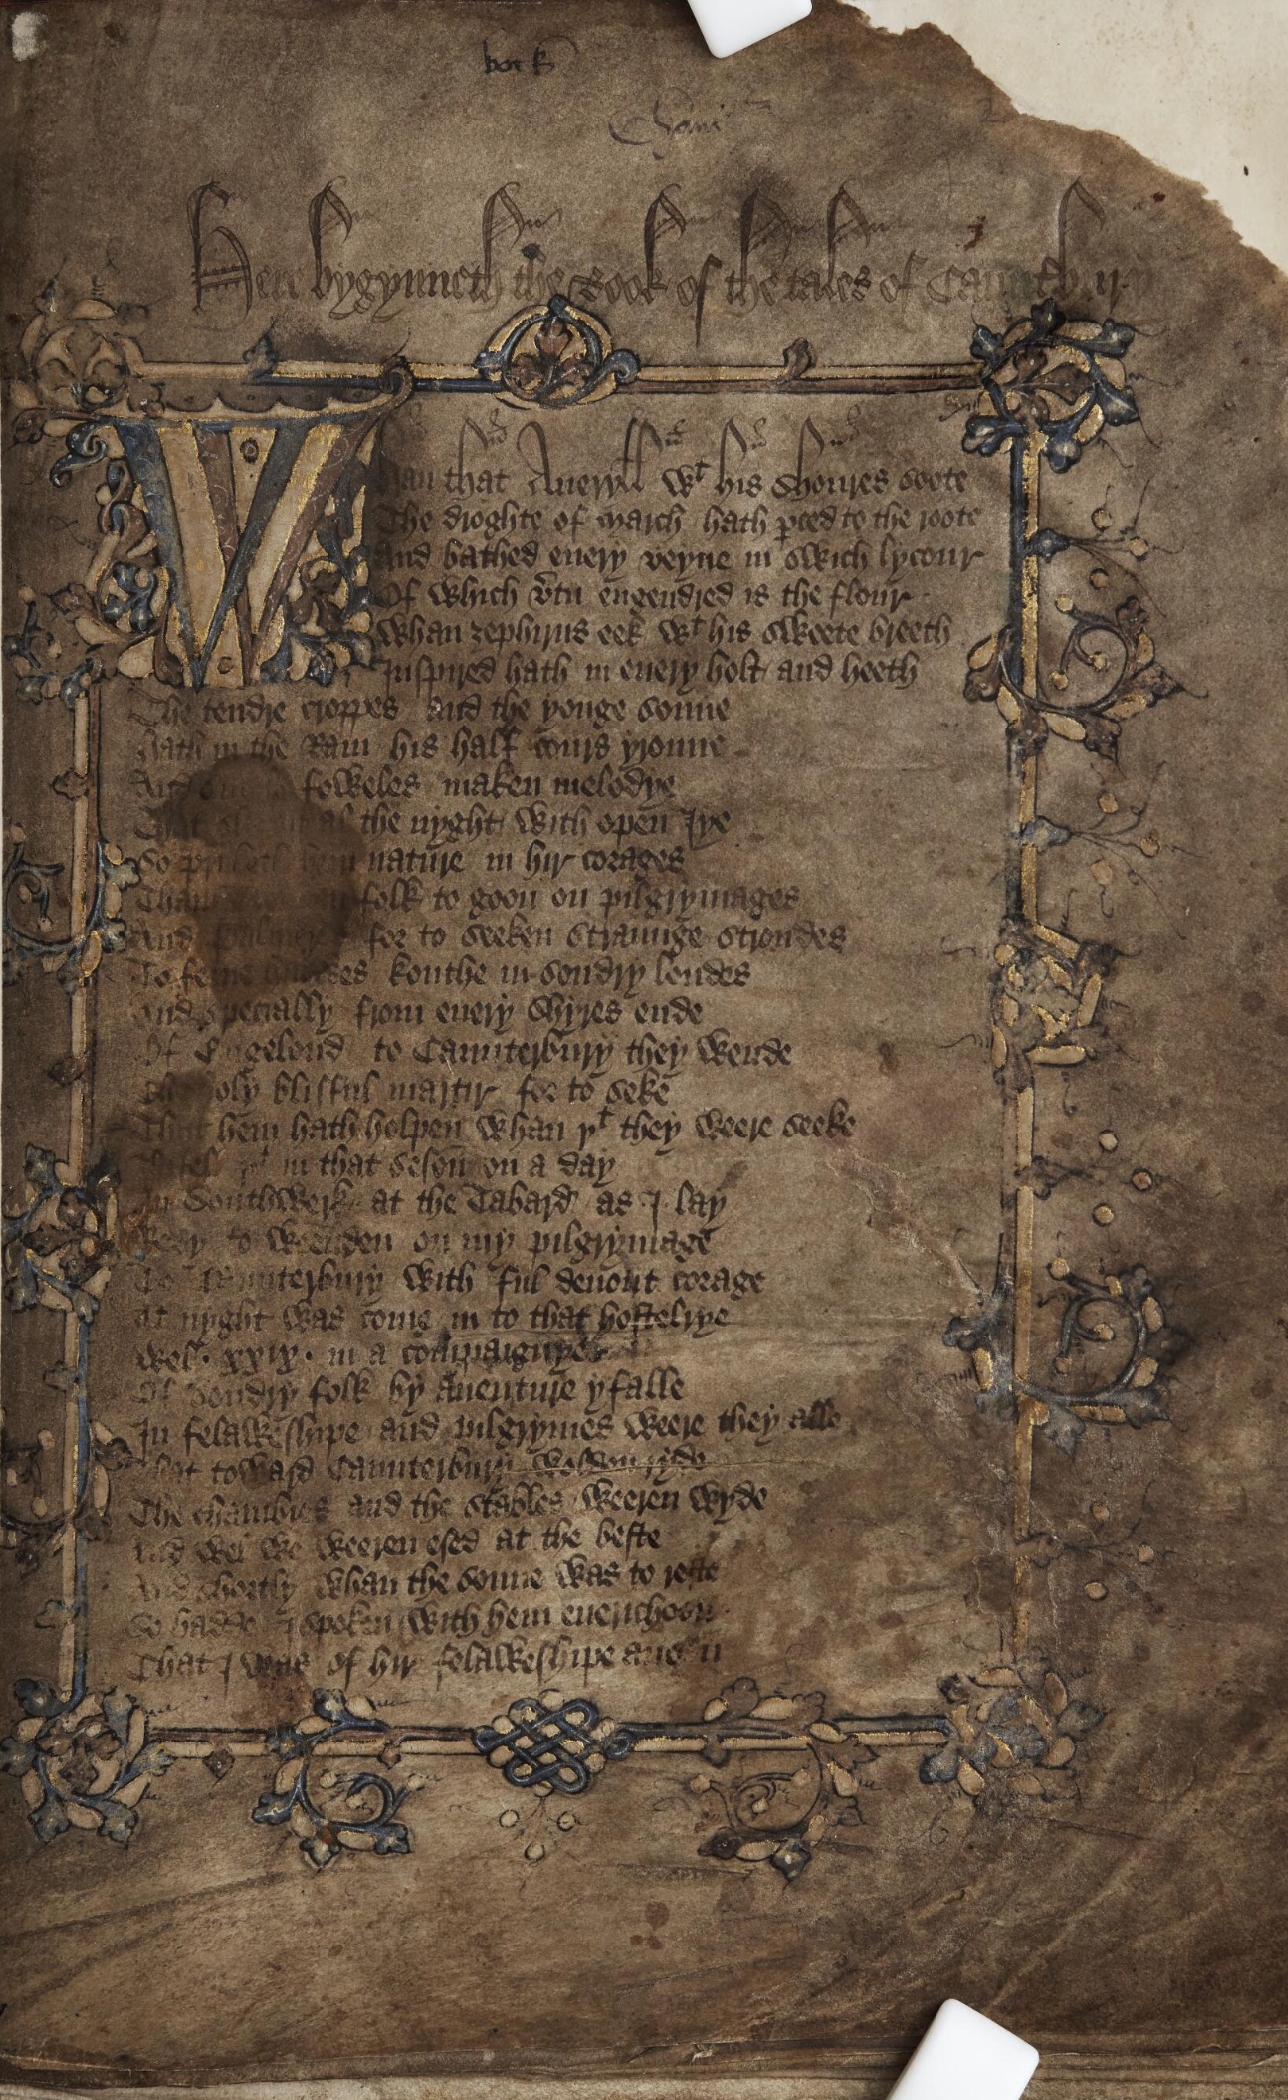 Here bygynneth the Book of the tales of Caunterbury
Whan that Aueryll wt his shoures soote
The droghte of march hath pced to the roote
And bathed euery veyne in swich lycour
Of which vtu engendred is the flour
Whan zephirus eek wt his sweete breeth
Inspired hath in euery holt and heeth
The tendre croppes and the yonge sonne
Hath in the Ram his half cours yronne
And foweles maken melodye
That al the nyght with open Iye
So priketh hem nature in hir corages
folk to goon on pilgrymages
And Palmeres for to seeken straunge strondes
To ferne halwes kouthe in sondry londes
And specially from euery shyres ende
Of Engelond to Caunterbury they wende
The holy blisful martir for to seke
That hem hath holpen whan yt they weere seeke
in that seson on a day
In Southwerk at the Tabard as I lay
Redy to weenden on my pilgrymage
To Caunterbury with ful deuout corage
At nyght was come in to that hostelrye
Wel .xxix. in a compaignye
Of sondry folk by auenture yfalle
In felaweshipe and pilgrymes weere they alle
That toward Caunterbury wolden ryde
The chambres and the stables weeren wyde
And wel we weeren esed at the beste
And shortly whan the sonne was to reste
So hadde I spoken with hem euerichoon
That I was of hir felaweshipe anon